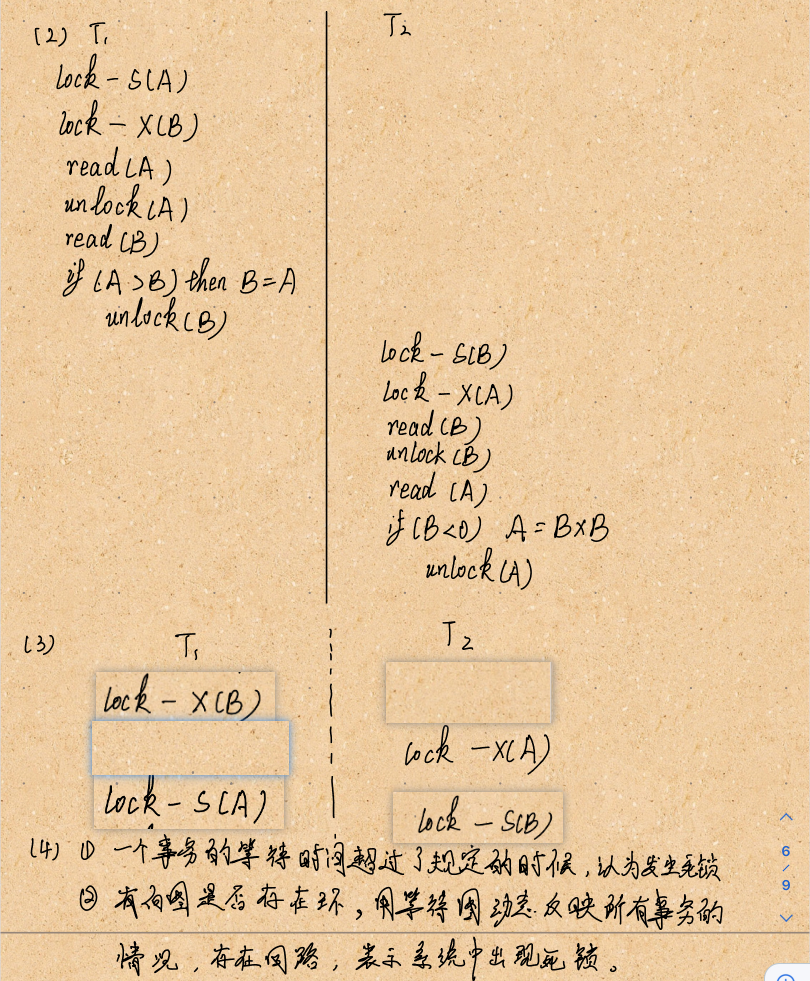 (2) T₁
T₂
lock - S(A)
lock - X(B)
read(A)
unlock(A)
read(B)
if (A>B) then B=A
unlock(B)
lock - S(B)
lock - X(A)
read(B)
unlock(B)
read (A)
if (B<0) A=B×B
unlock(A)
(3) T₁ T₂
lock - X(B)
lock - X(A)
lock - S(A)
lock - S(B)
(4) ① 一个事务的等待时间超过了规定的时候,认为发生死锁
② 有向图是否存在环,用等待图动态反映所有事务的
情况,存在回路,表示系统中出现死锁。
6
/
9